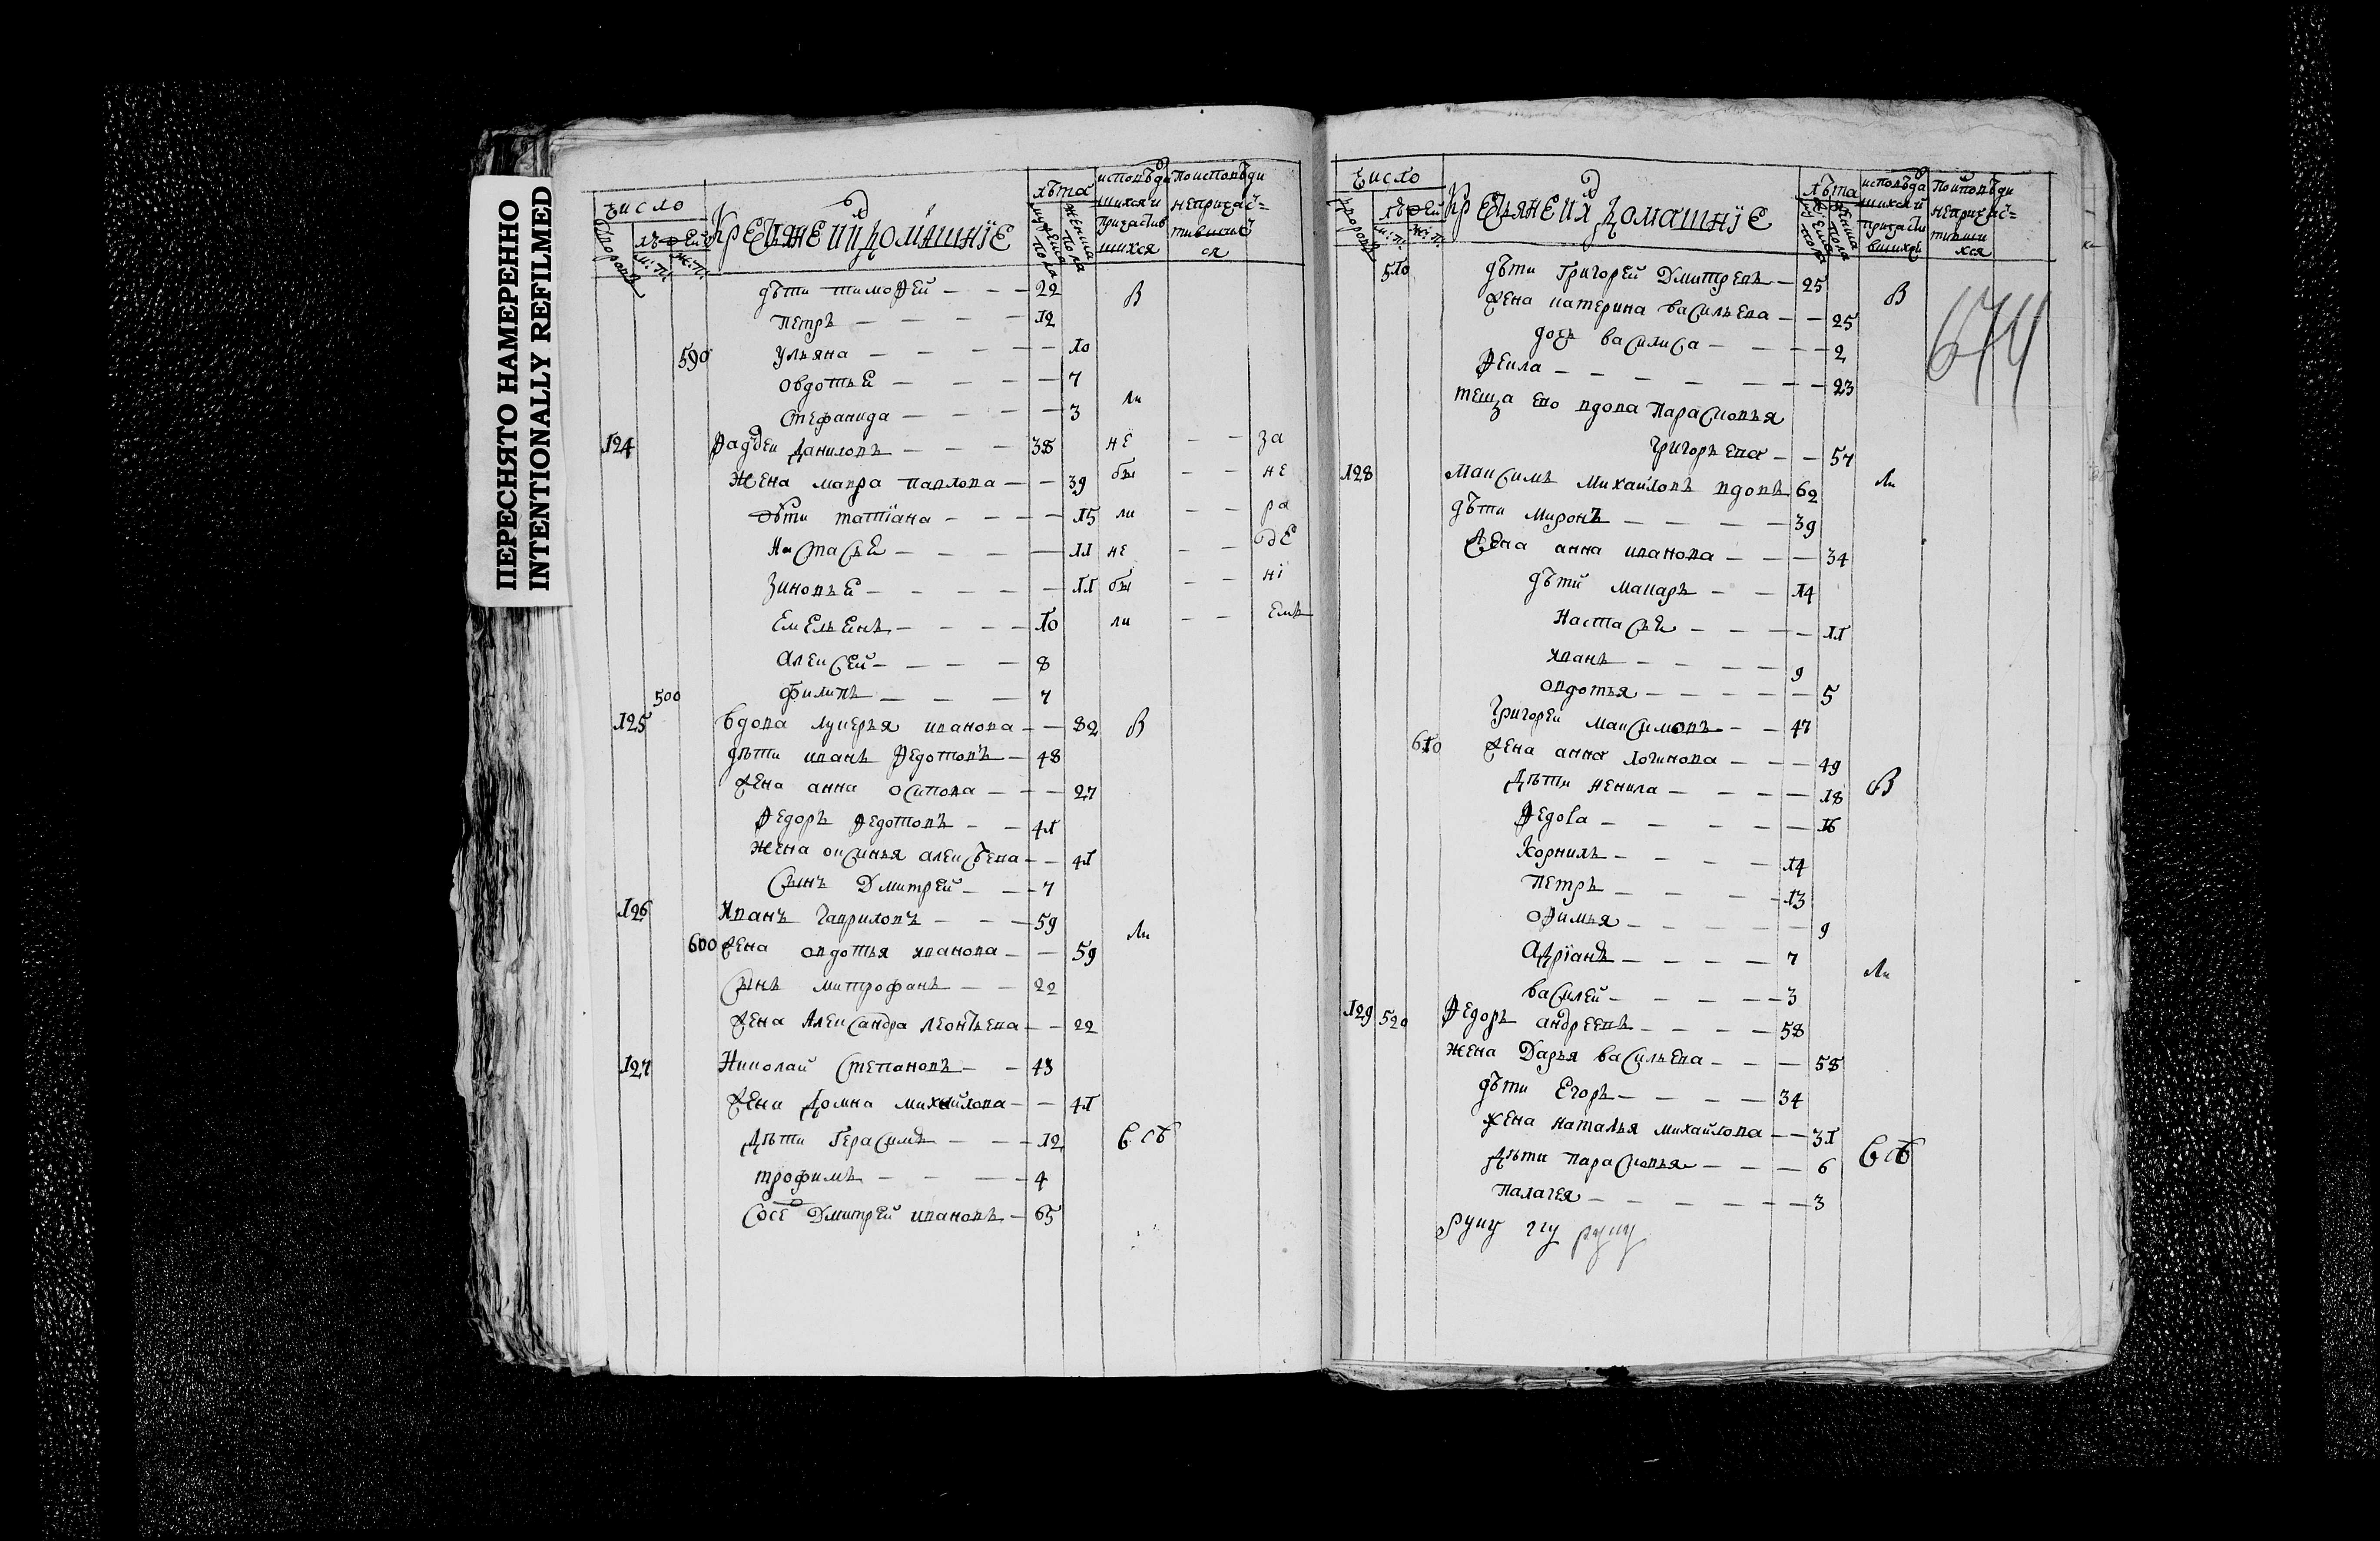 ПЕРЕСНЯТО НАМЕРЕННО
INTENTIONALLY REFILMED
число
дворовъ
людей
м: п:
ж: п:
Крестьяне и ихъ домашніе
лѣта
мужеска пола
женска пола
исповѣдавшихся и причастившихся
по исповѣди непричастившихся
дѣти тимоѳей — — — 22 в
петръ — — — — 12
590 ульяна — — — — 10
овдотья — — — — 7
стефанида — — — — 3 ли
124 Ѳадѣеи данилавъ — — — 38 не — — за
жена мавра павлова — — 39 бы — — не
дѣти таттіана — — — — 15 ли — — ра
настасья — — — — 11 не — — де
зиновья — — — — 11 бы — — ні
емельянъ — — — — 10 ли — — емъ
алексей — — — — 8
500 филипъ — — — 7
125 вдова лукерья иванова — — 82 в
дѣти иванъ Ѳедотовъ — 48
жена анна осипова — — — 27
Ѳедоръ Ѳедотовъ — — 41
жена оксинья алексѣева — — 41
сынъ Дмитрей — — — 7
126 Иванъ гаврилавъ — — — 59
600 жена овдотья иванова — — 59 ли
сынъ митрофанъ — — 22
жена Александра леонтьева — — 22
127 Николай степановъ — — 43
жена домна михаилова — — 41
дѣти герасимъ — — — 12 в сѣ
трофимъ — — — — 4
Дмитрей ивановъ — 65
число
дворовъ
людей
м: п:
ж: п:
Крестьяне и ихъ домашніе
лѣта
мужеска пола
женска пола
исповѣдавшихся и причастившихся
по исповѣди непричастившихся
674
510 дѣти григорей Дмитревъ — 25 в
жена катерина васильева — — 25
дочь василиса — — — — 2
Ѳекла — — — — — — — 23
теща ево вдова парасковья
григорьева — — 57
128 максимъ михаиловъ вдовъ 62 ли
дѣти миронъ — — — — — 39
жена анна иванова — — — 34
дѣти макаръ — — — 14
настасья — — — — — 11
иванъ — — — — — 9
овдотья — — — — — 5
григорей максимовъ — — 47
610 жена анна логинова — — — 49
дѣти ненила — — — — — 18 в
Ѳедоса — — — — — 16
корнилъ — — — — 14
петръ — — — — 13
оѲимья — — — — — 9
адріанъ — — — — 7
василей — — — — — 3 ли
129 520 Ѳедоръ андреевъ — — — — 58
жена дарья васильева — — — 58
дѣти егоръ — — — — 34
жена наталья михайлова — — 31
дѣти парасковья — — — 6 в сѣ
палагея — — — — — — 3
руку руку